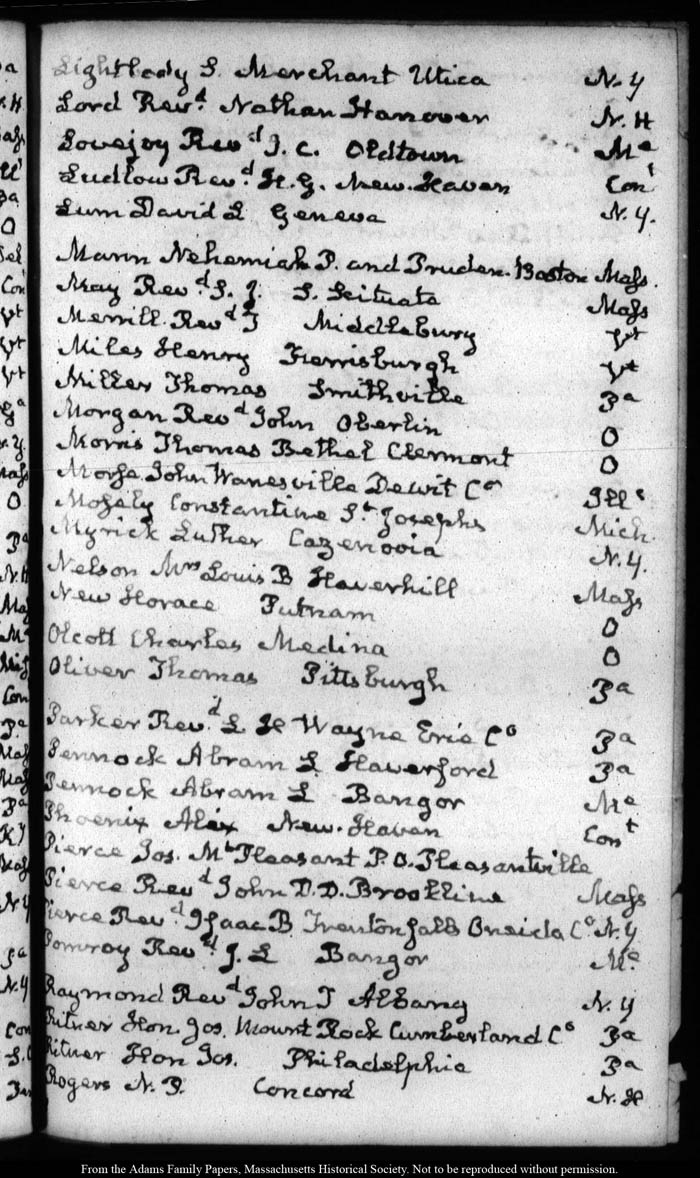 Lightbody S. Merchant Utica N.Y
Lord Revd. Nathan Hanover N.H
Lovejoy Revd J. C. Oldtown Me
Ludlow Revd. H.G. New-Haven Cont
Lum David L Geneva N.Y.
Mann Nehemiah P. and Pruden. Boston Mass.
May Revd. S. J. S. Scituate Mass
Merrill Revd T Middlebury Vt
Miles Henry Ferrisburgh Vt
Miller Thomas Smithville Pa
Morgan Revd John Oberlin O
Morris Thomas Bethel Clermont O
Morse John Wanesville Dewit Co Ills
Mosely Constantine St Josephs Mich.
Myrick Luther Cazenovia N.Y.
Nelson Mrs Louis B Haverhill Mass
New Horace Putnam O
Olcott Charles Medina O
Oliver Thomas Pittsburgh Pa
Parker Revd. L H Wayne Erie Co Pa
Pennock Abram L. Haverford Pa
Pennock Abram L Bangor Me
Phoenix Alex New-Haven Cont
Pierce Jos. Mt Pleasant P.O. Pleasantville
Pierce Revd John D.D. Brookline Mass
Pierce Revd. Isaac B. Trenton falls Oneida Co N.Y
Pomroy Revd. J. L Bangor Me
Raymond Revd John T Albany N.Y
Ritner Hon. Jos. Mount Rock Cumberland Co Pa
Ritner Hon Jos. Philadelphia Pa
Rogers N. P. Concord N.H
From the Adams Family Papers, Massachusetts Historical Society. Not to be reproduced without permission.